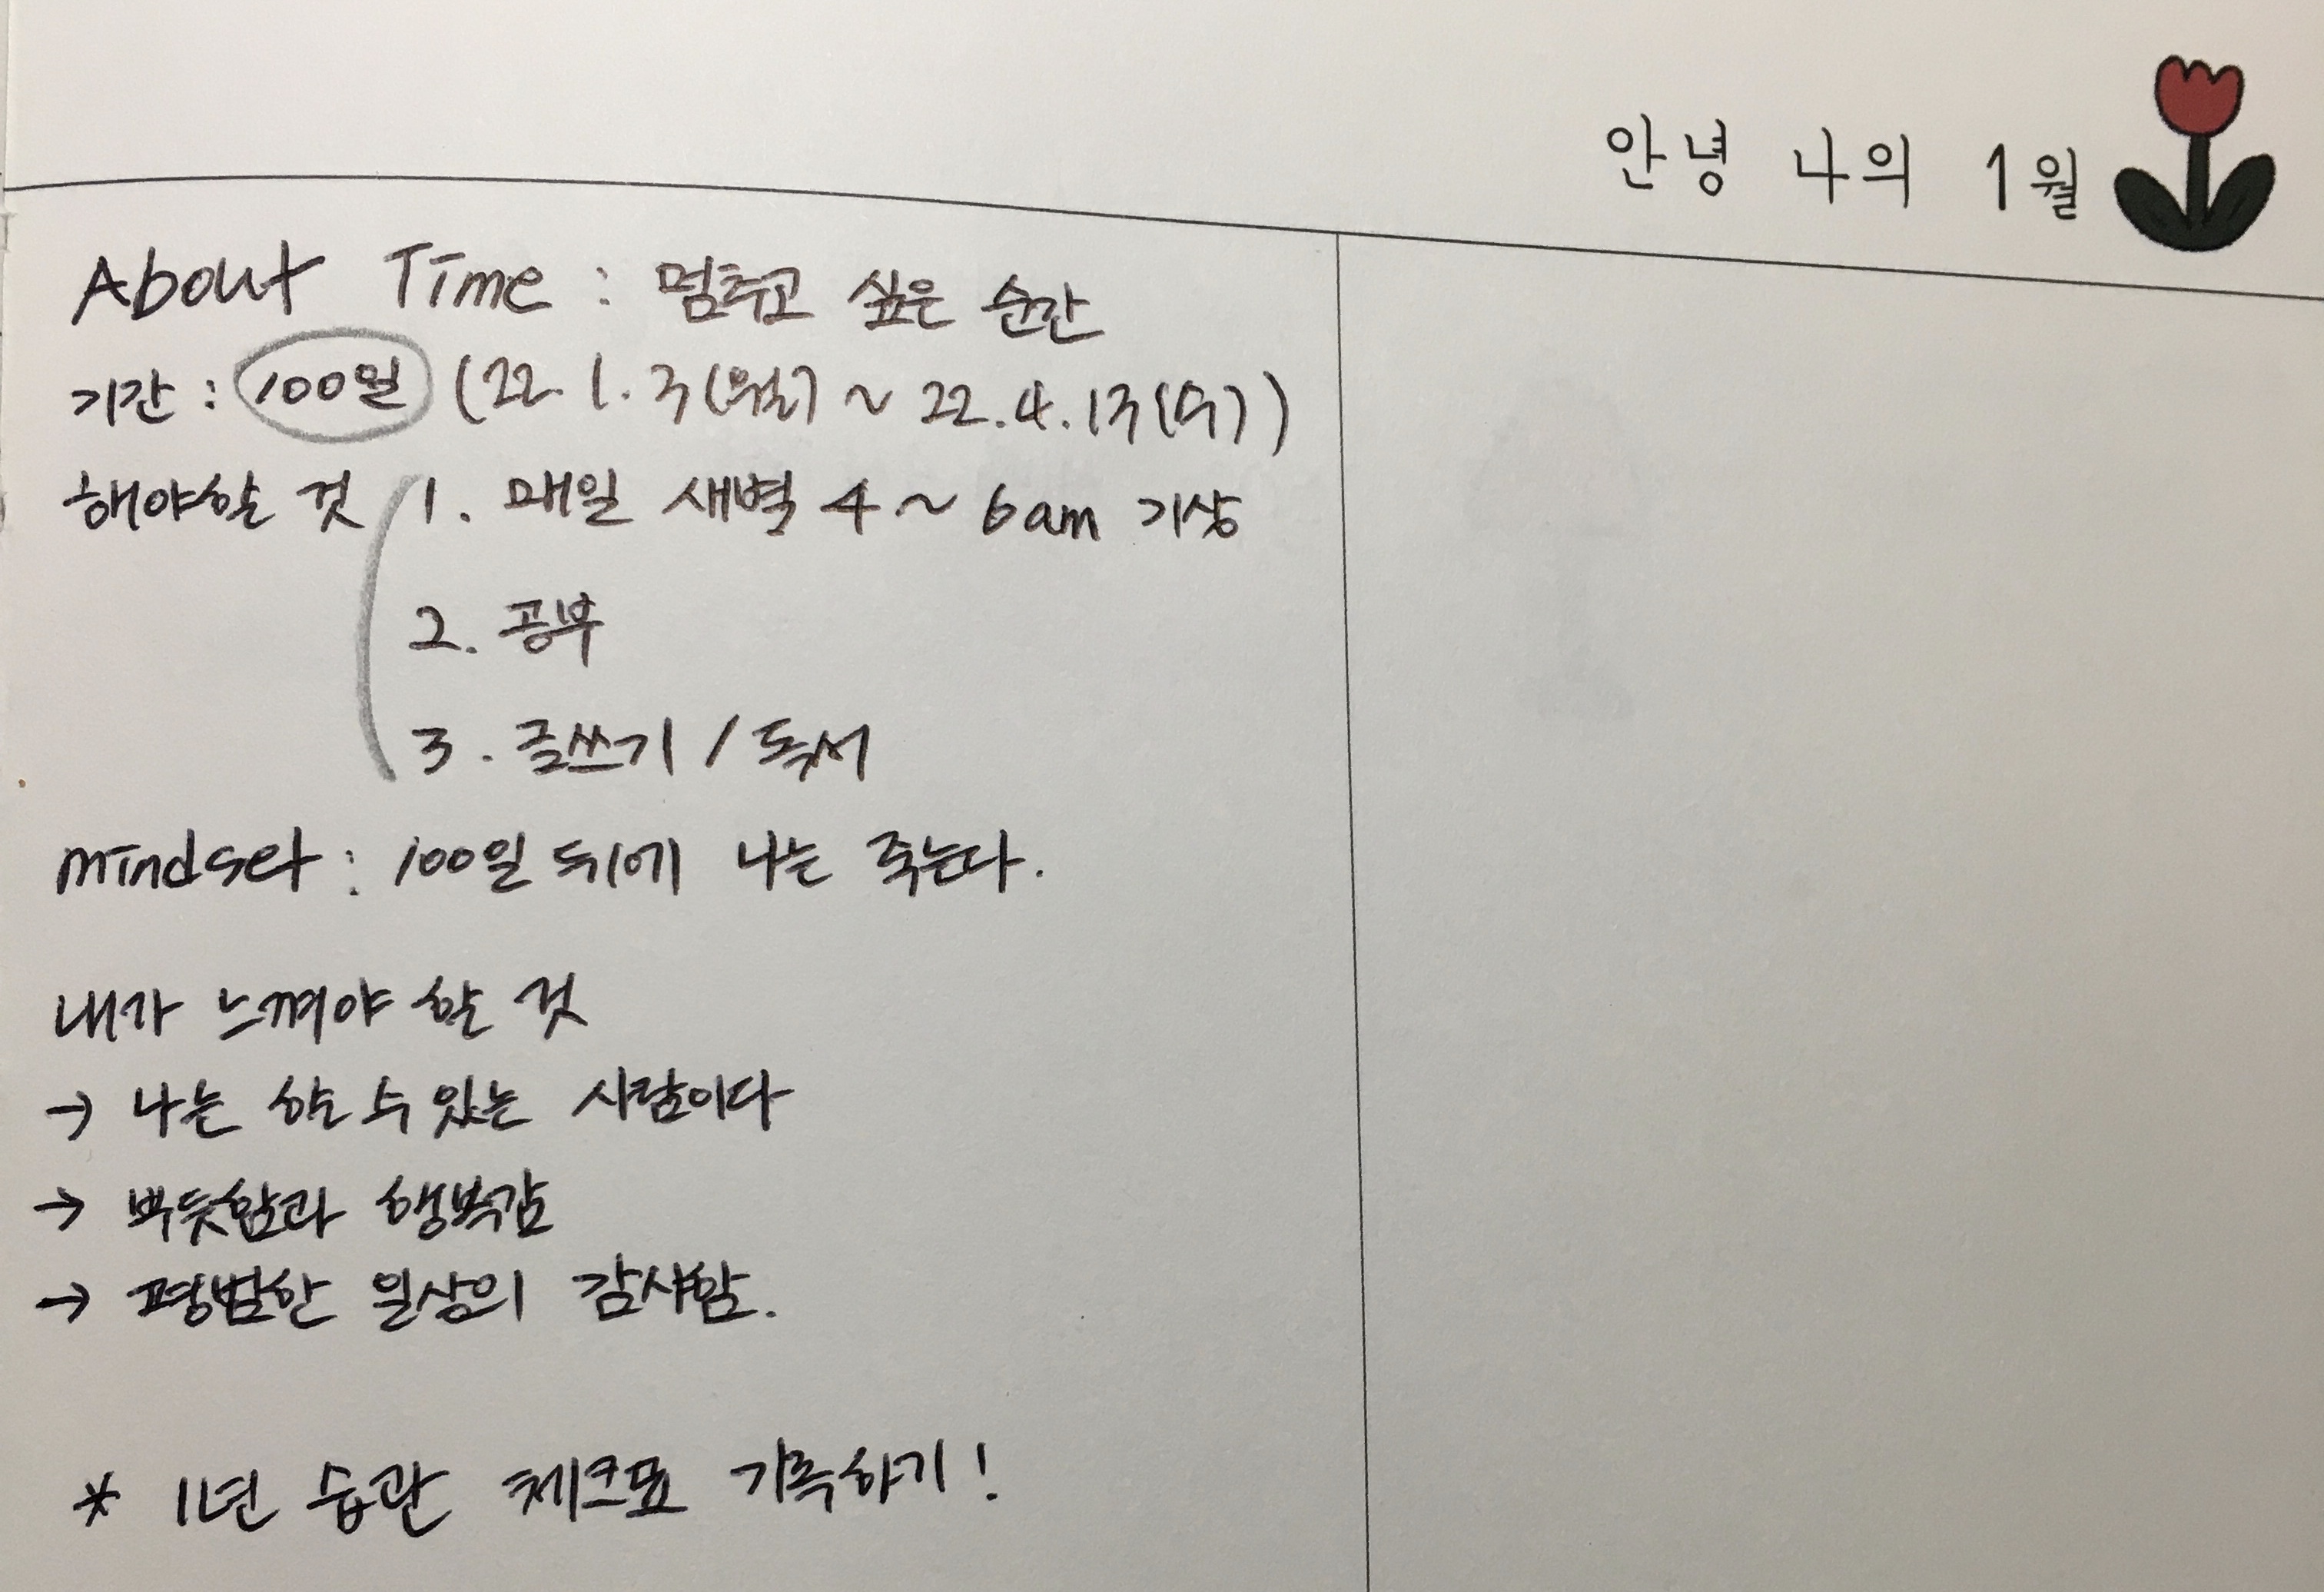 안녕 나의 1월
About Time : 멈추고 싶은 순간
기간 : 100일 (22.1.3(월) ~ 22.4.13(수))
해야할 것 1. 매일 새벽 4 ~ 6am 기상
2. 공부
3. 글쓰기 / 독서
mindset : 100일 뒤에 나는 죽는다.
내가 느껴야 할 것
→ 나는 할 수 있는 사람이다
→ 뿌듯함과 행복감
→ 평범한 일상의 감사함.
* 1년 습관 체크표 기록하기!